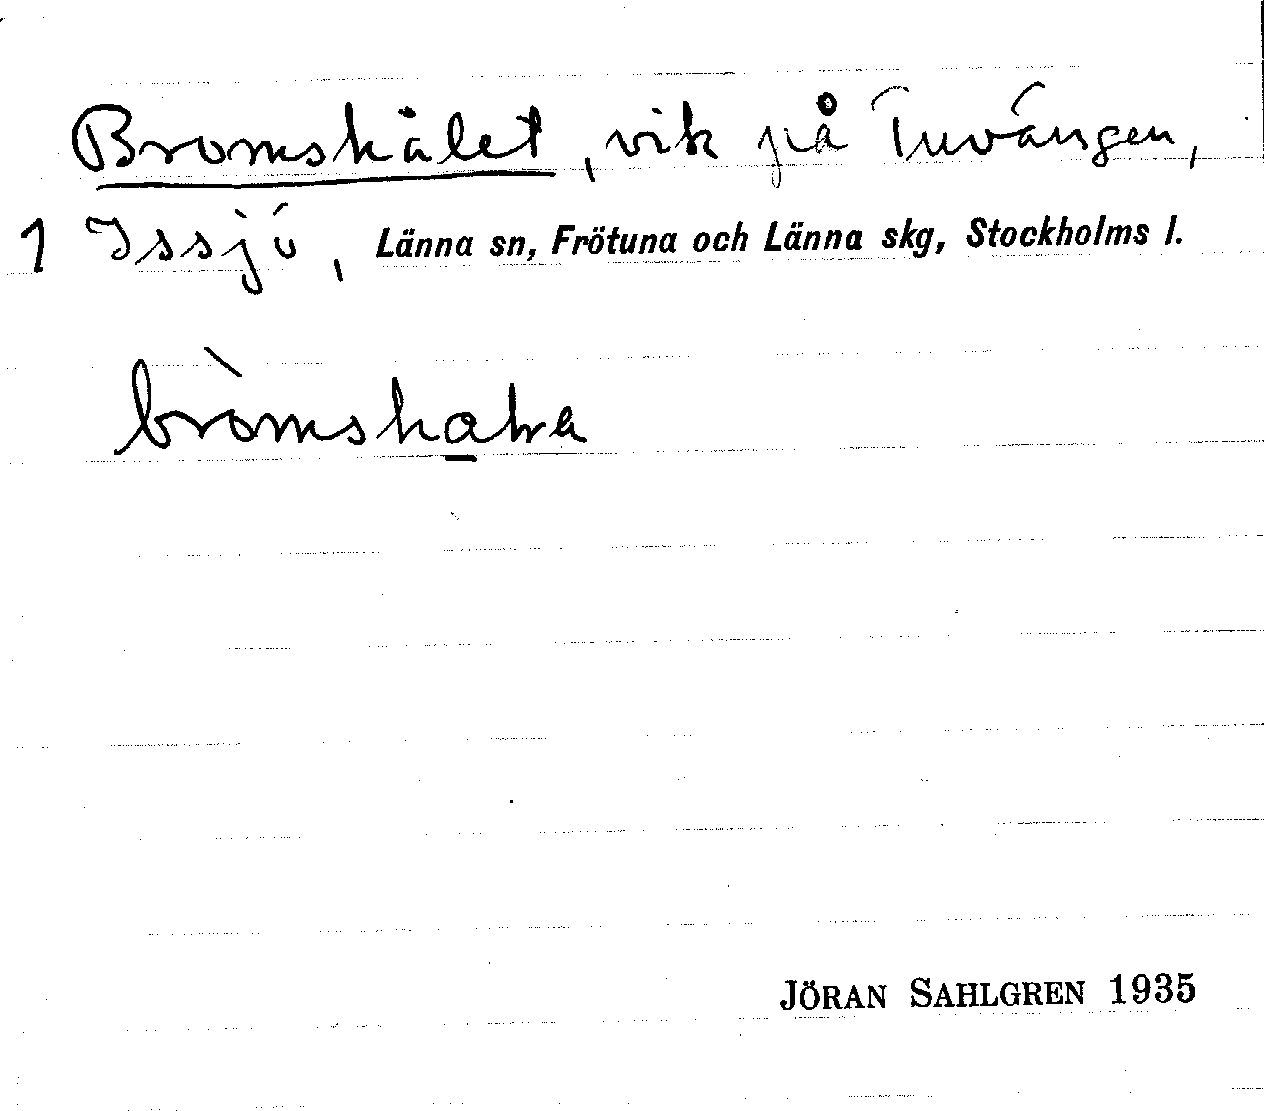 Bromskälet, vik på Tuvängen,
1 Issjö, Länna sn, Frötuna och Länna skg, Stockholms l.
JÖRAN SAHLGREN 1935